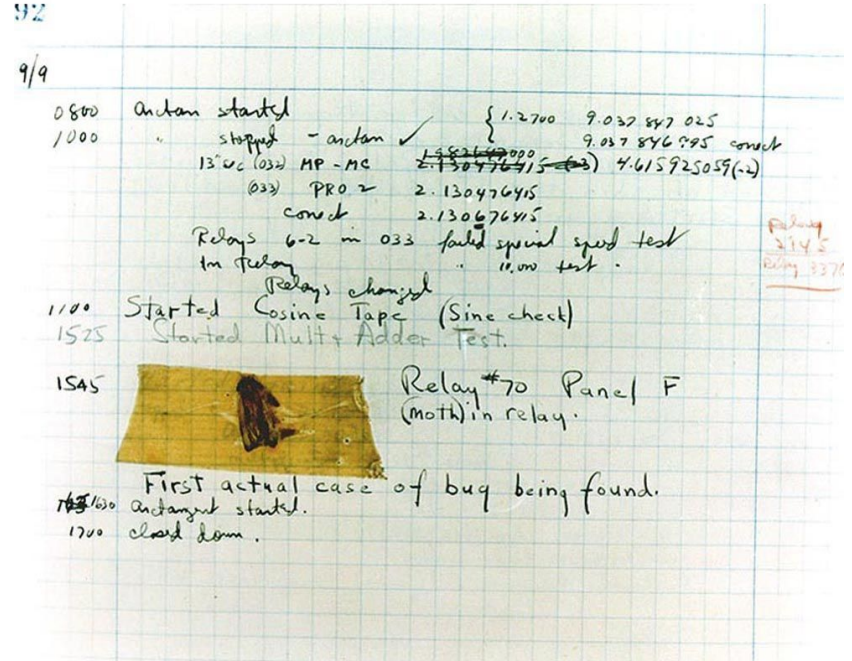 92
9/9
0800 arctan started { 1.2700 9.037 847 025
1000 " stopped - arctan ✓ 9.037 846 995 correct
13"uc (032) MP - MC 1.982647000 2.130476415 (-3) 4.615925059(-2)
(033) PRO 2 2.130476415
correct 2.130676415
Relays 6-2 in 033 failed special speed test
In Relay " 10.000 test .
Relay
2145
Relay 3370
Relays changed
1100 Started Cosine Tape (Sine check)
1525 Started Mult + Adder Test.
1545 Relay #70 Panel F
(moth) in relay.
First actual case of bug being found.
1630 arctangent started.
1700 closed down .